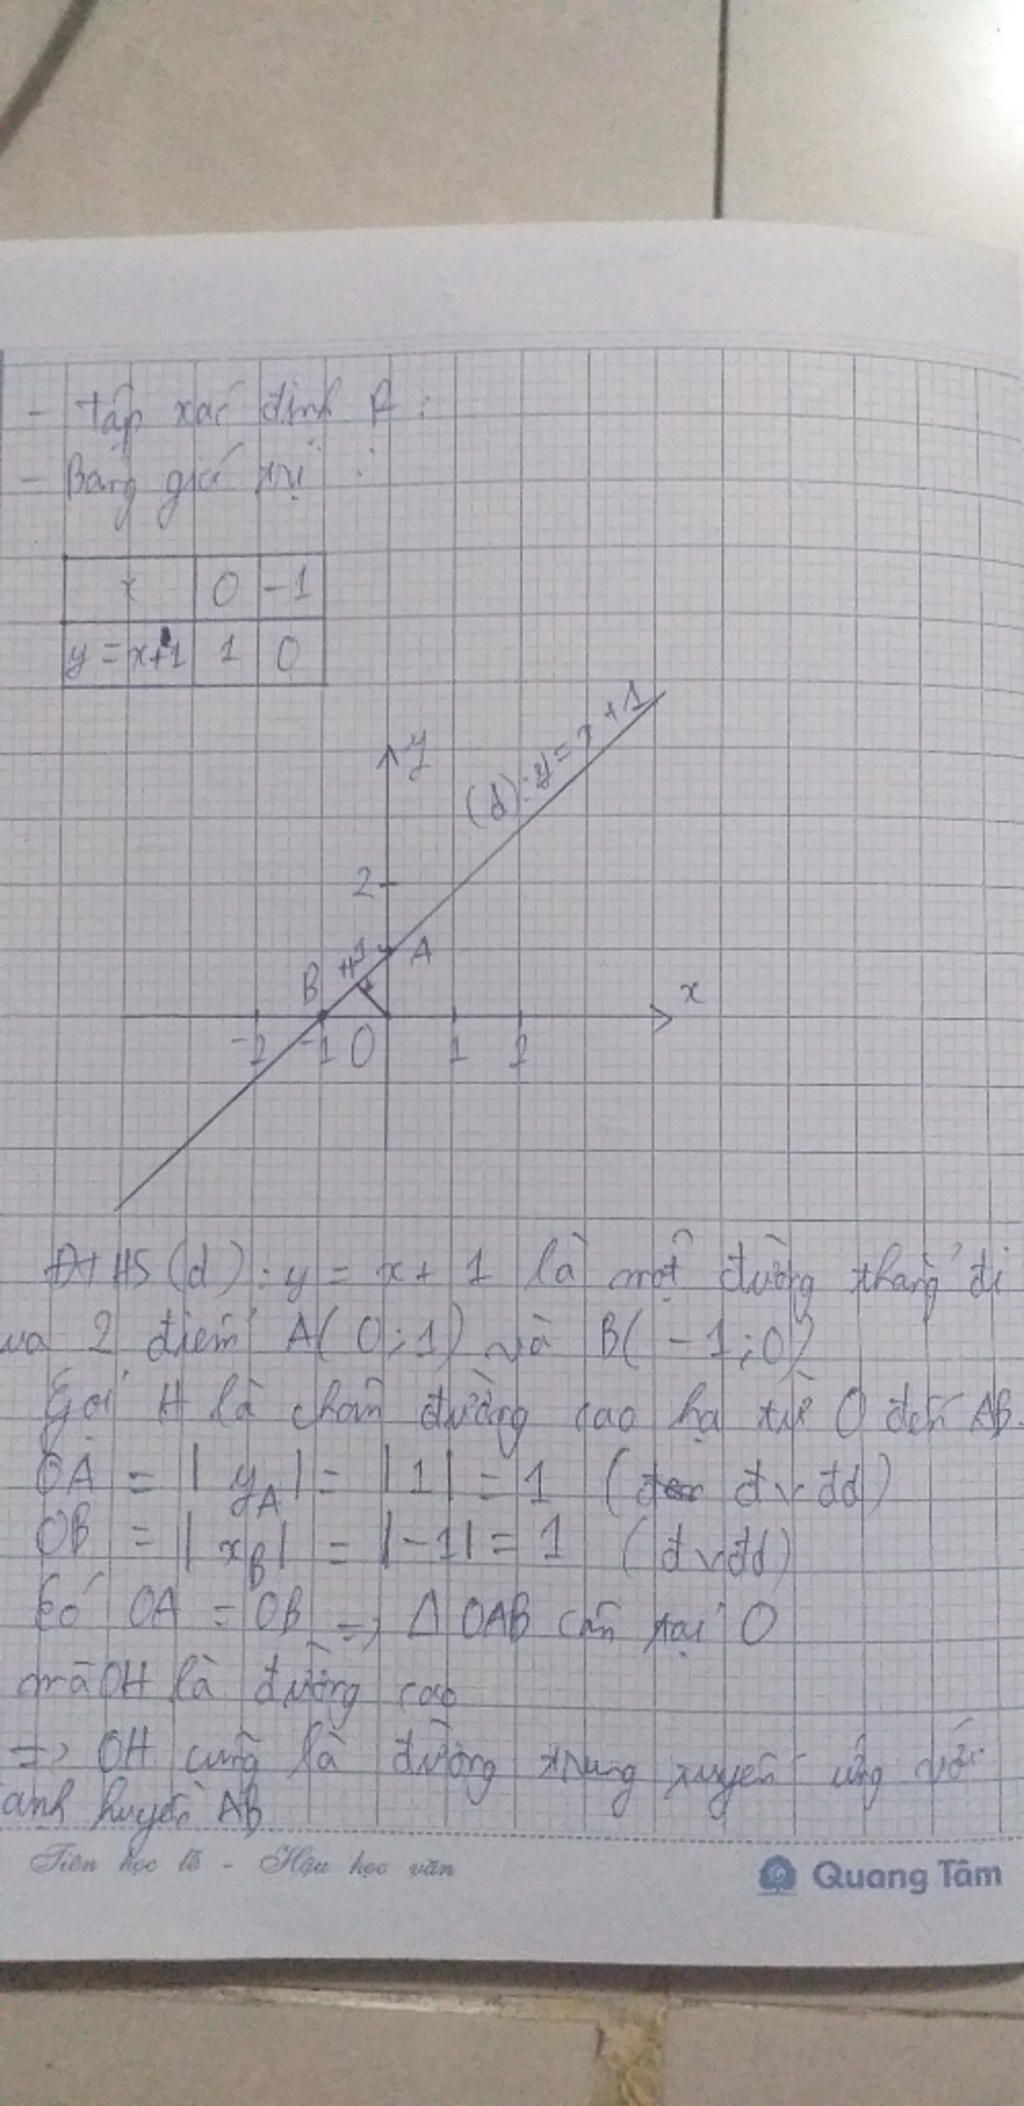 - Tập xác định R:
- Bảng giá trị:
x 0 -1
y = x+1 1 0
y
(d): y = x + 1
2
1 A
H
B
x
-1 O 1
ĐTHS (d): y = x + 1 là một đường thẳng đi
ua 2 điểm A( 0;1) và B( -1;0)
Gọi H là chân đường cao hạ từ O đến AB.
OA = | yA| = |1| = 1 ( đvđd)
OB = | xB| = |-1| = 1 (đvđd)
Có OA = OB => Δ OAB cân tại O
mà OH là đường cao
=> OH cũng là đường trung tuyến ứng với
ạnh huyền AB
Tiên học lễ - Hậu học văn
Quang Tâm